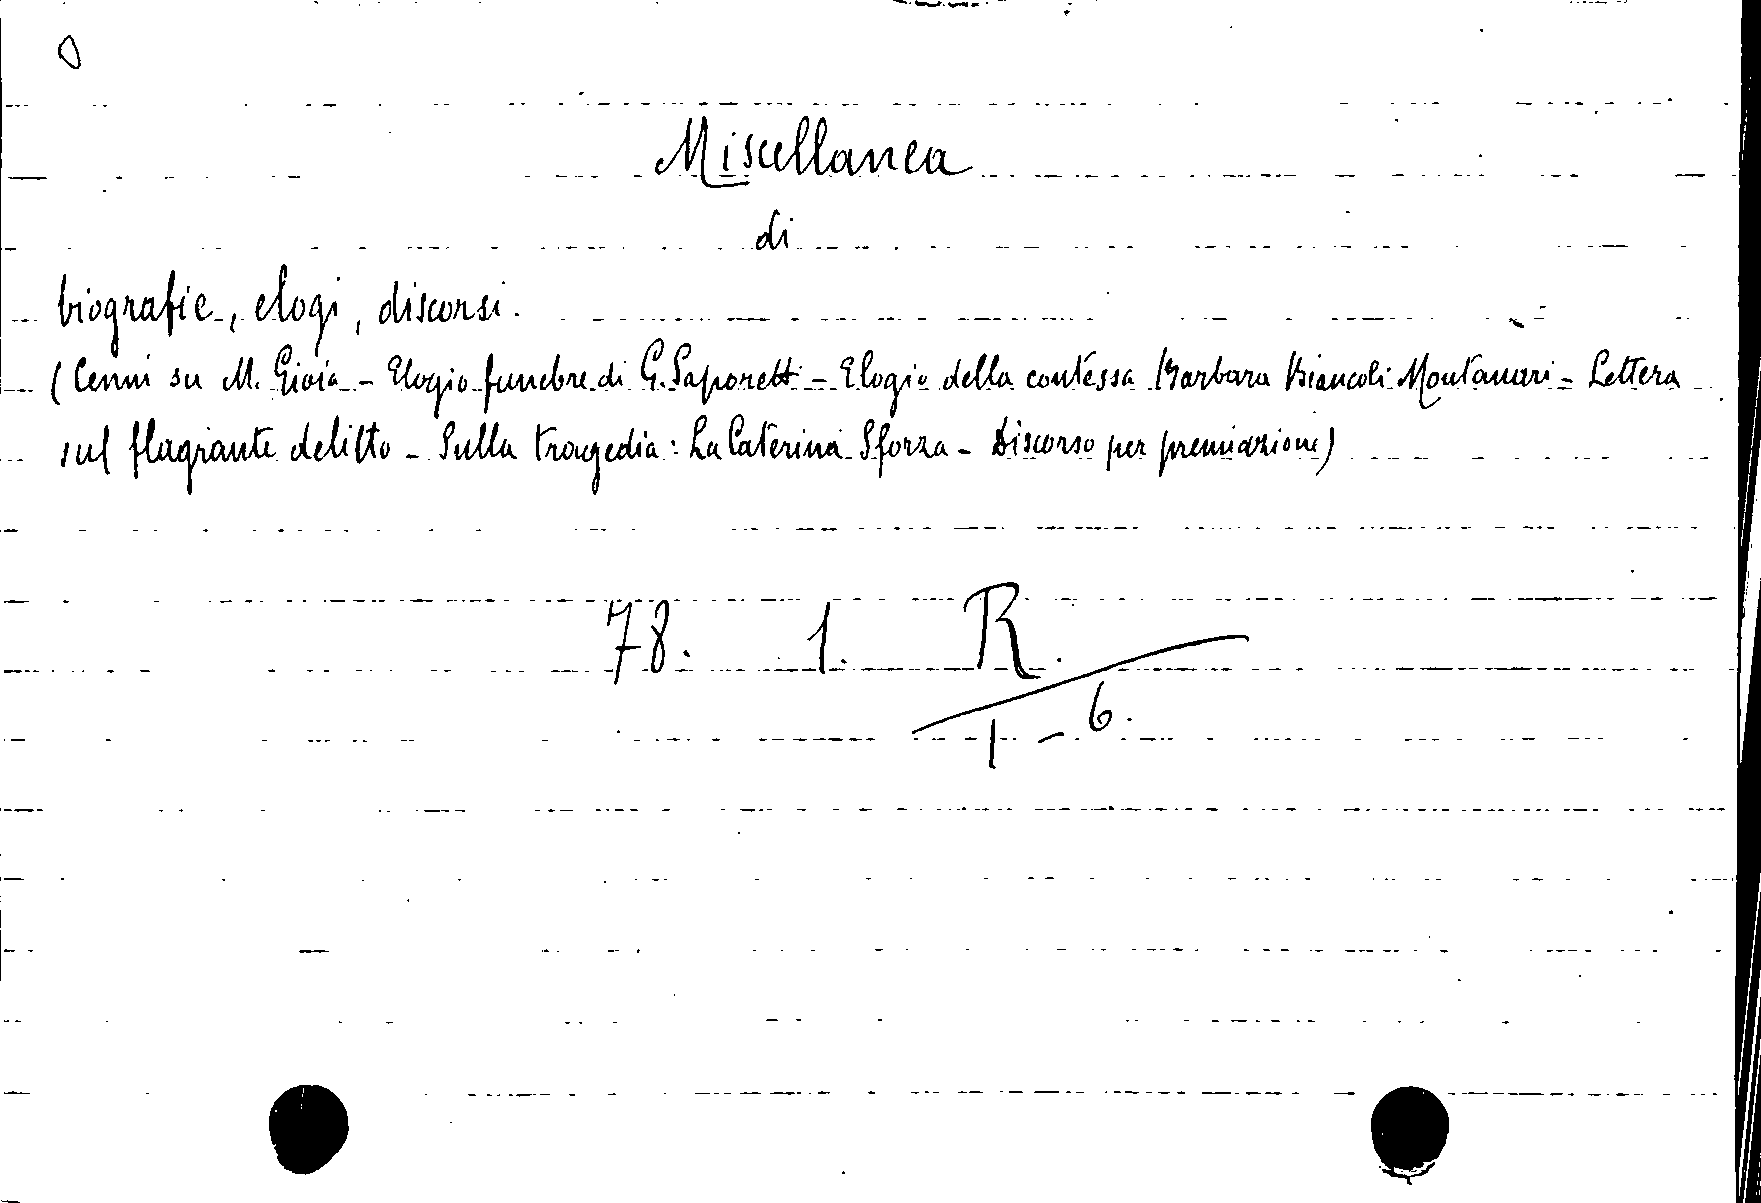 Miscellanea
di
biografie, elogi, discorsi.
(Cenni su M. Gioia - Elogio funebre di G. Saporetti - Elogio della contessa Barbara Biancoli Montanari - Lettera
sul flagrante delitto - Sulla tragedia: La Caterina Sforza - Discorso per premiazione)
78. 1. R.
1 - 6.